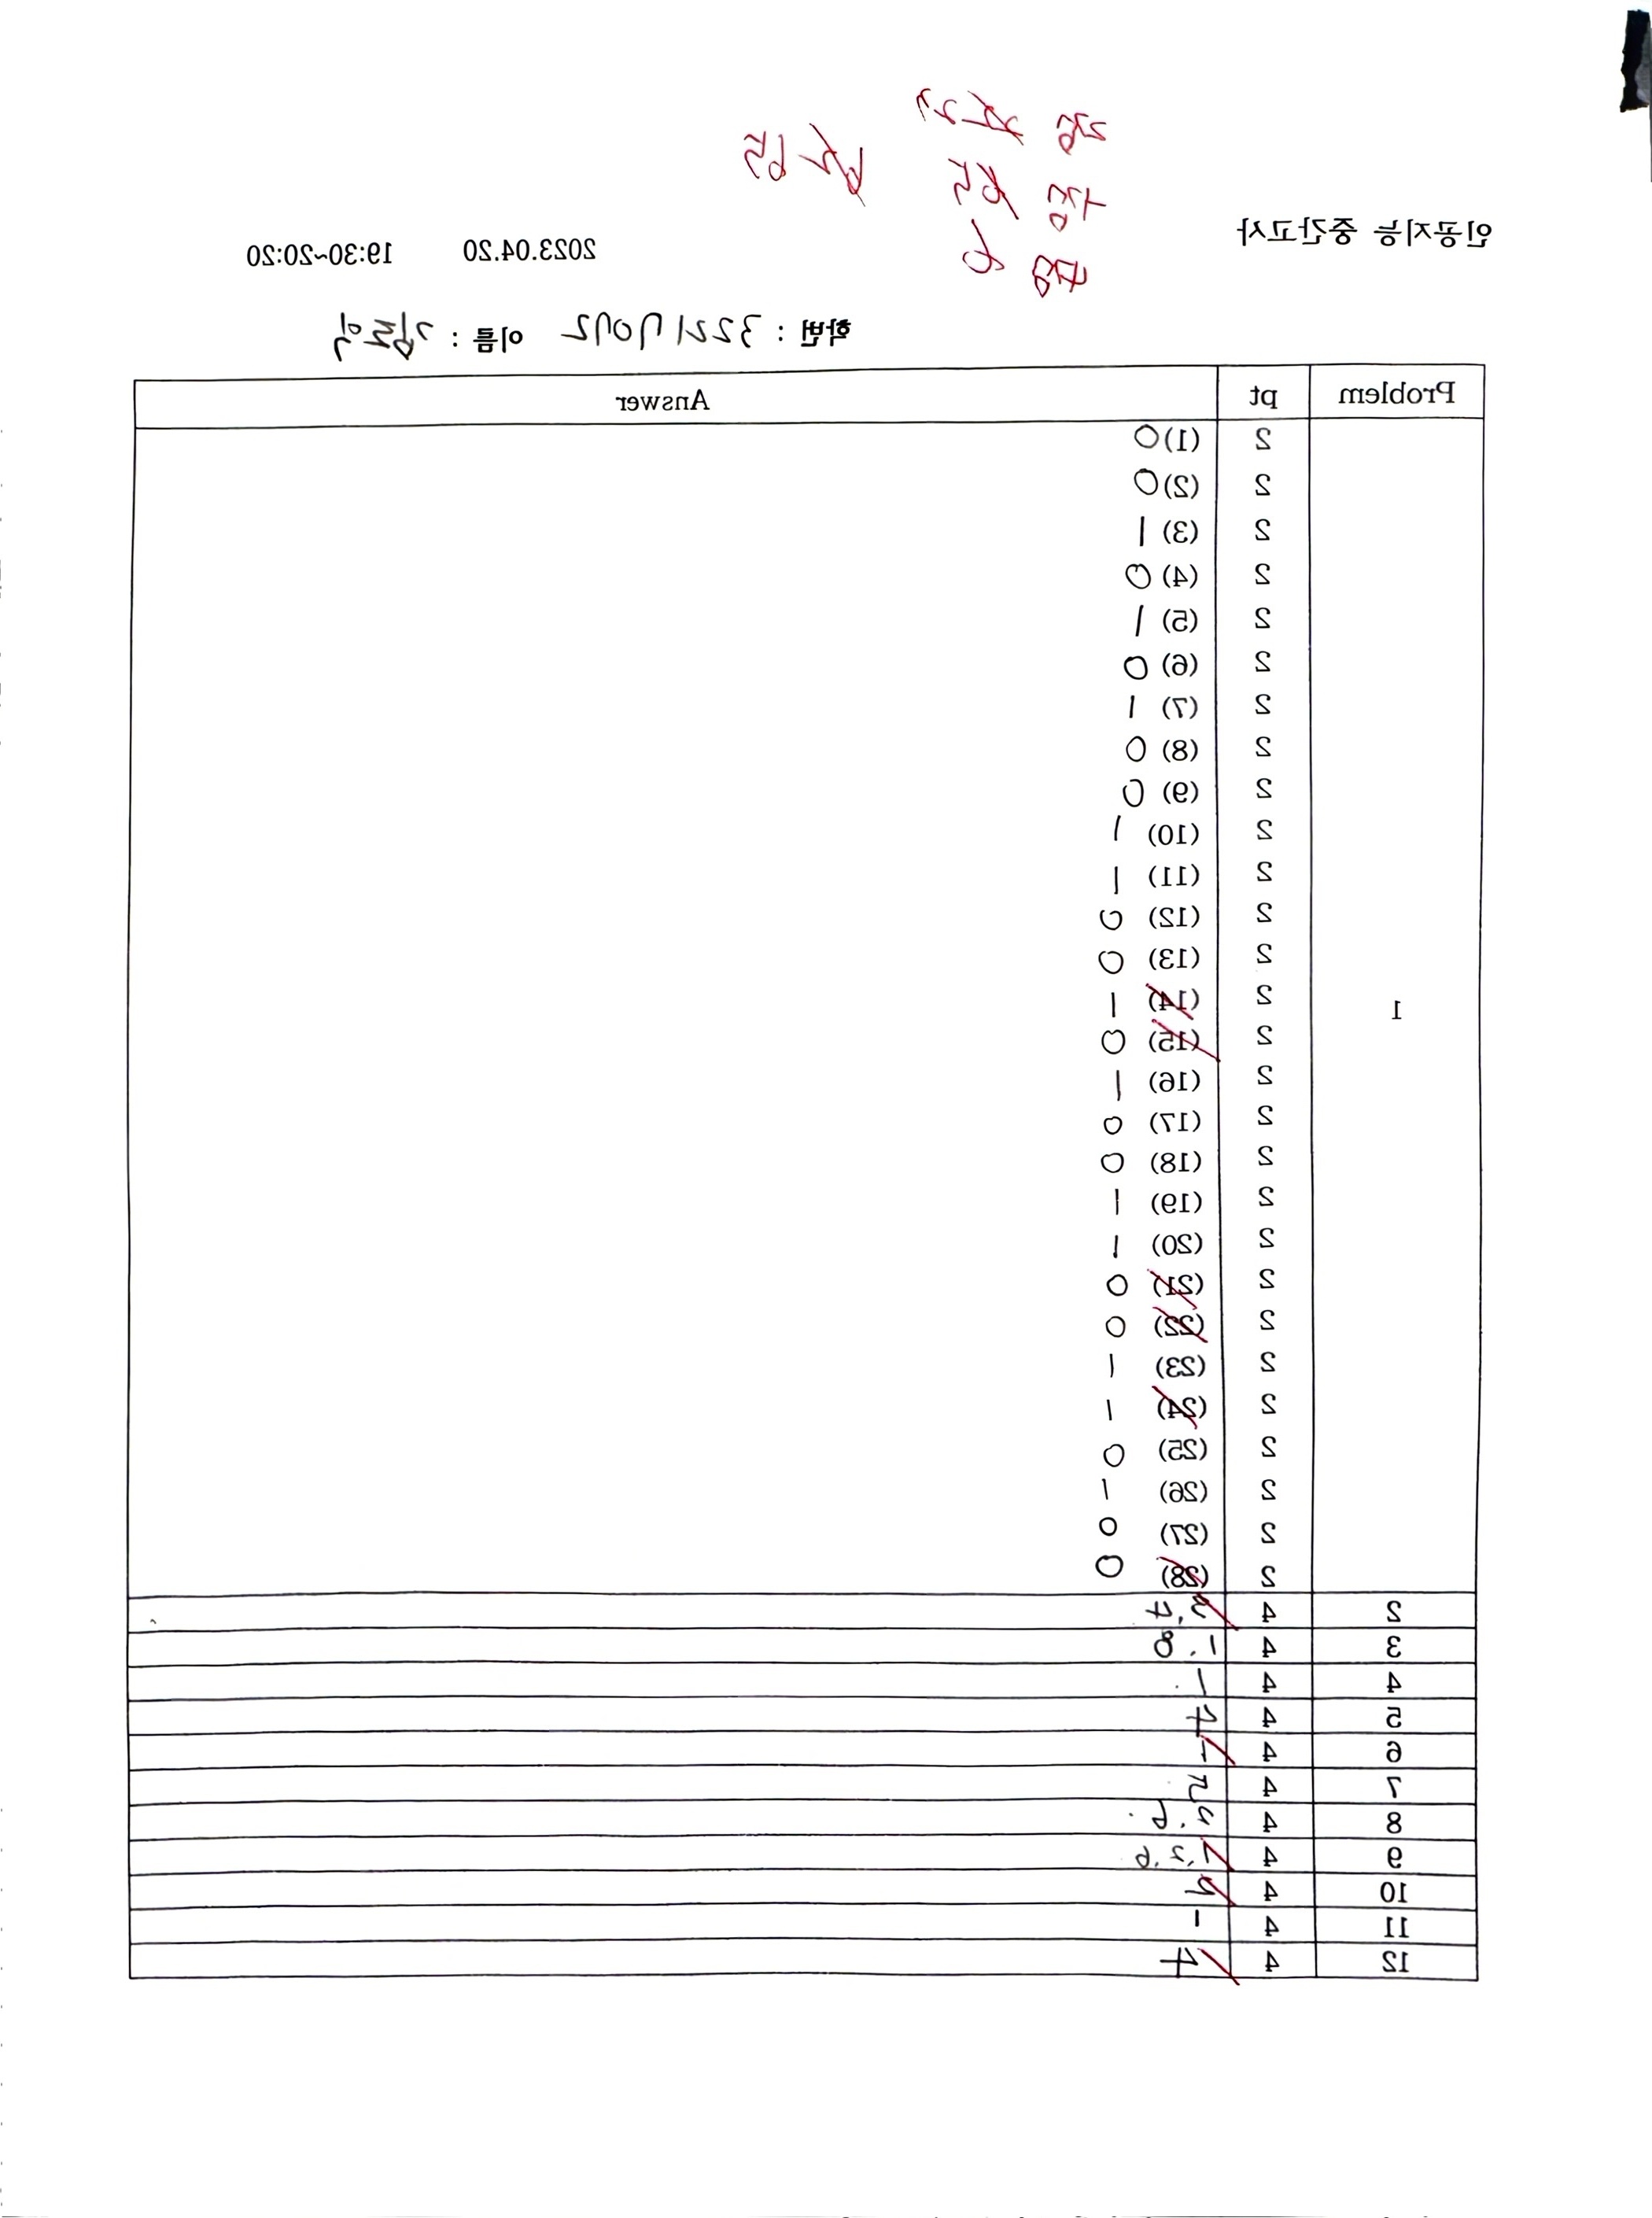 2점
4점 5
65
인공지능 중간고사 2023.04.20 19:30~20:20
학번 : 32217072 이름 :
Problem pt Answer
2 (1) 0
2 (2) 0
2 (3) 1
2 (4) 0
2 (5) 1
2 (6) 0
2 (7) 1
2 (8) 0
2 (9) 0
2 (10) 1
2 (11) 1
2 (12) 0
2 (13) 0
1 2 (14) 1
2 (15) 0
2 (16) 1
2 (17) 0
2 (18) 0
2 (19) 1
2 (20) 1
2 (21) 0
2 (22) 0
2 (23) 1
2 (24) 1
2 (25) 0
2 (26) 1
2 (27) 0
2 (28) 0
2 4
3 4 1, 8
4 4 1
5 4 4
6 4 1
7 4 5
8 4
9 4 1, 2, 6
10 4
11 4 1
12 4 4